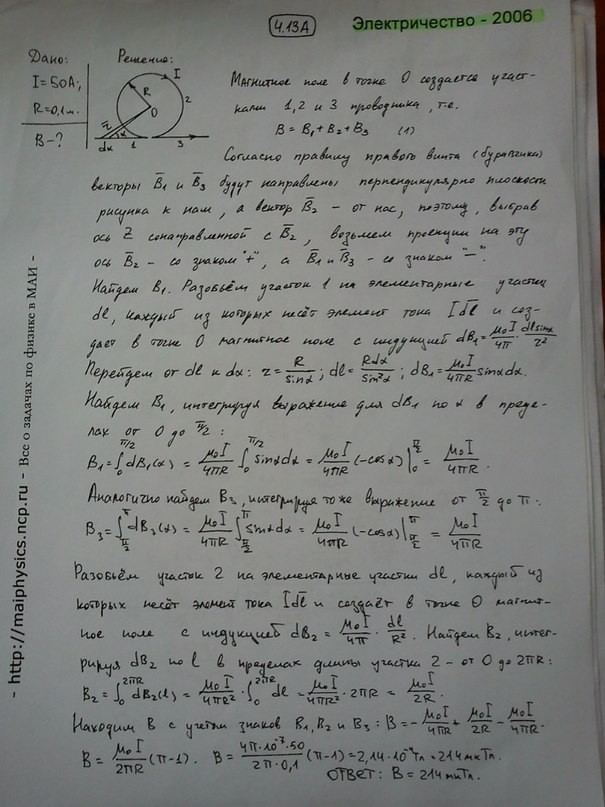 4.13А
Электричество - 2006
Дано:
I=50А;
R=0,1м.
B-?
Решение:
I
R
2
O
r
α
dα
1
3
Магнитное поле в точке О создается участ-
ками 1,2 и 3 проводника, т.е.
B = B₁ + B₂ + B₃ (1)
Согласно правилу правого винта (буравчика)
векторы B̅₁ и B̅₃ будут направлены перпендикулярно плоскости
рисунка к нам, а вектор B̅₂ - от нас, поэтому, выбрав
ось Z сонаправленной с B̅₂, возьмем проекции на эту
ось B̅₂ - со знаком "+", а B̅₁ и B̅₃ - со знаком "-".
Найдем B₁. Разобьём участок 1 на элементарные участки
dl, каждый из которых несёт элемент тока Idl̅ и соз-
дает в точке О магнитное поле с индукцией dB₁ = μ₀I/4π · dl sinα/r²
Перейдем от dl к dα: r = R/sinα; dl = Rdα/sin²α; dB₁ = μ₀I/4πR sinα dα.
Найдем B₁, интегрируя выражение для dB₁ по α в преде-
лах от 0 до π/2:
B₁ = ∫₀^(π/2) dB₁(α) = μ₀I/4πR ∫₀^(π/2) sinα dα = μ₀I/4πR (-cosα)|₀^(π/2) = μ₀I/4πR.
Аналогично найдем B₃, интегрируя тоже выражение от π/2 до π:
B₃ = ∫_(π/2)^π dB₃(α) = μ₀I/4πR ∫_(π/2)^π sinα dα = μ₀I/4πR (-cosα)|_(π/2)^π = μ₀I/4πR
Разобьём участок 2 на элементарные участки dl, каждый из
которых несёт элемент тока Idl̅ и создаёт в точке О магнит-
ное поле с индукцией dB₂ = μ₀I/4π · dl/R². Найдем B₂, интег-
рируя dB₂ по l в пределах длины участка 2 - от 0 до 2πR:
B₂ = ∫₀^(2πR) dB₂(l) = μ₀I/4πR² · ∫₀^(2πR) dl = μ₀I/4πR² · 2πR = μ₀I/2R.
Находим B с учетом знаков B₁, B₂ и B₃: B = -μ₀I/4πR + μ₀I/2R - μ₀I/4πR.
B = μ₀I/2πR (π-1). B = 4π·10⁻⁷·50/2π·0,1 (π-1) = 2,14·10⁻⁴Тл = 214 мкТл.
ОТВЕТ: B = 214 мкТл.
- http://maiphysics.ncp.ru - Все о задачах по физике в МАИ -